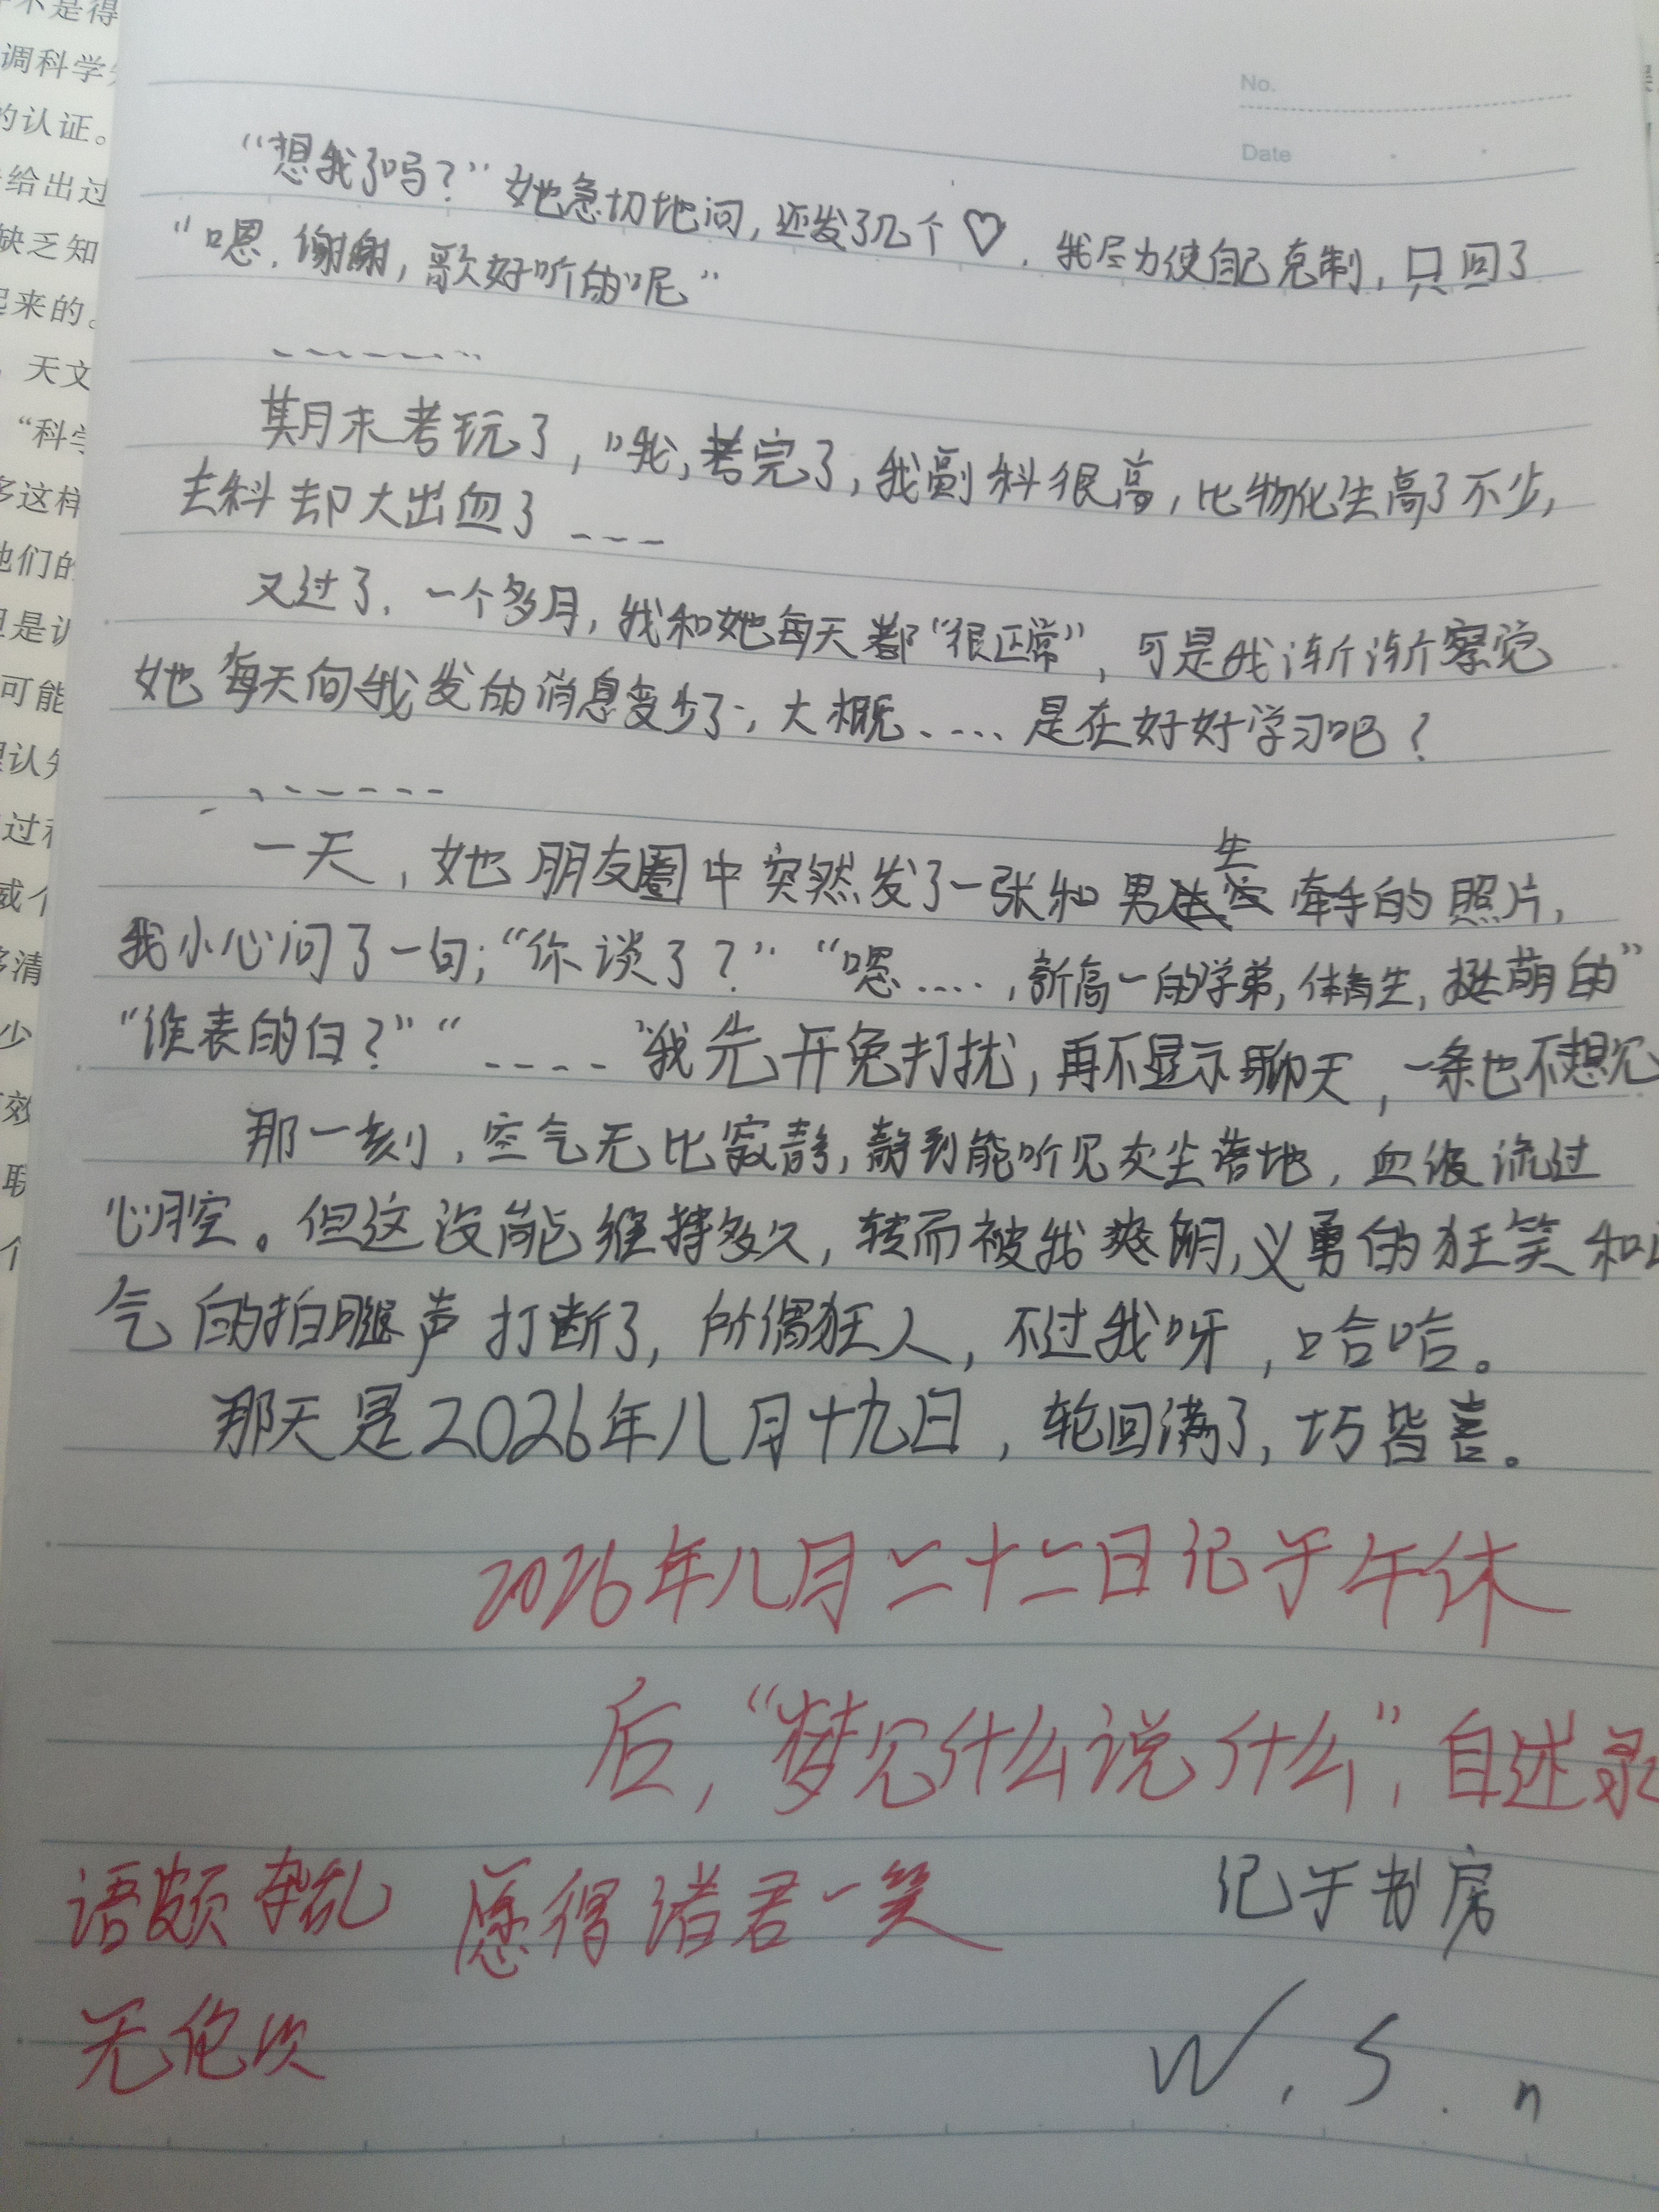 No.
Date
“想我了吗？”她急切地问，还发了几个♡，我尽力使自己克制，只回了
“嗯，谢谢，歌好听的呢”
-------
期月末考玩了，“哦，考完了，我副科很高，比物化生高了不少，
去科却大出血了---
又过了，一个多月，我和她每天都“很正常”，可是我渐渐察觉
她每天向我发的消息变少了，大概....是在好好学习吧？
-------
一天，她朋友圈中突然发了一张和男生牵手的照片，
我小心问了一句；“你谈了？”“嗯....，新高一的学弟，体育生，挺萌的”
“谁表的白？”“----”我先开免打扰，再不显示聊天，一条也不想见
那一刻，空气无比寂静，静到能听见灰尘落地，血液流过
心腔。但这没能维持多久，转而被我爽朗，义勇的狂笑和
气的拍腿声打断了，所偶狂人，不过我呀，哈哈。
那天是2026年八月十九日，轮回满了，巧皆喜。
2026年八月二十二日记于午休
后，“梦见什么说什么”，自述录
语颇杂乱 愿得诸君一笑 记于书房
无伦次
W.S.n
不是得
调科学
的认证。
给出过
缺乏知
起来的。
，天文
“科学
多这样
他们的
但是认
可能
理认知
过程
或个
够清
少
效
联
个